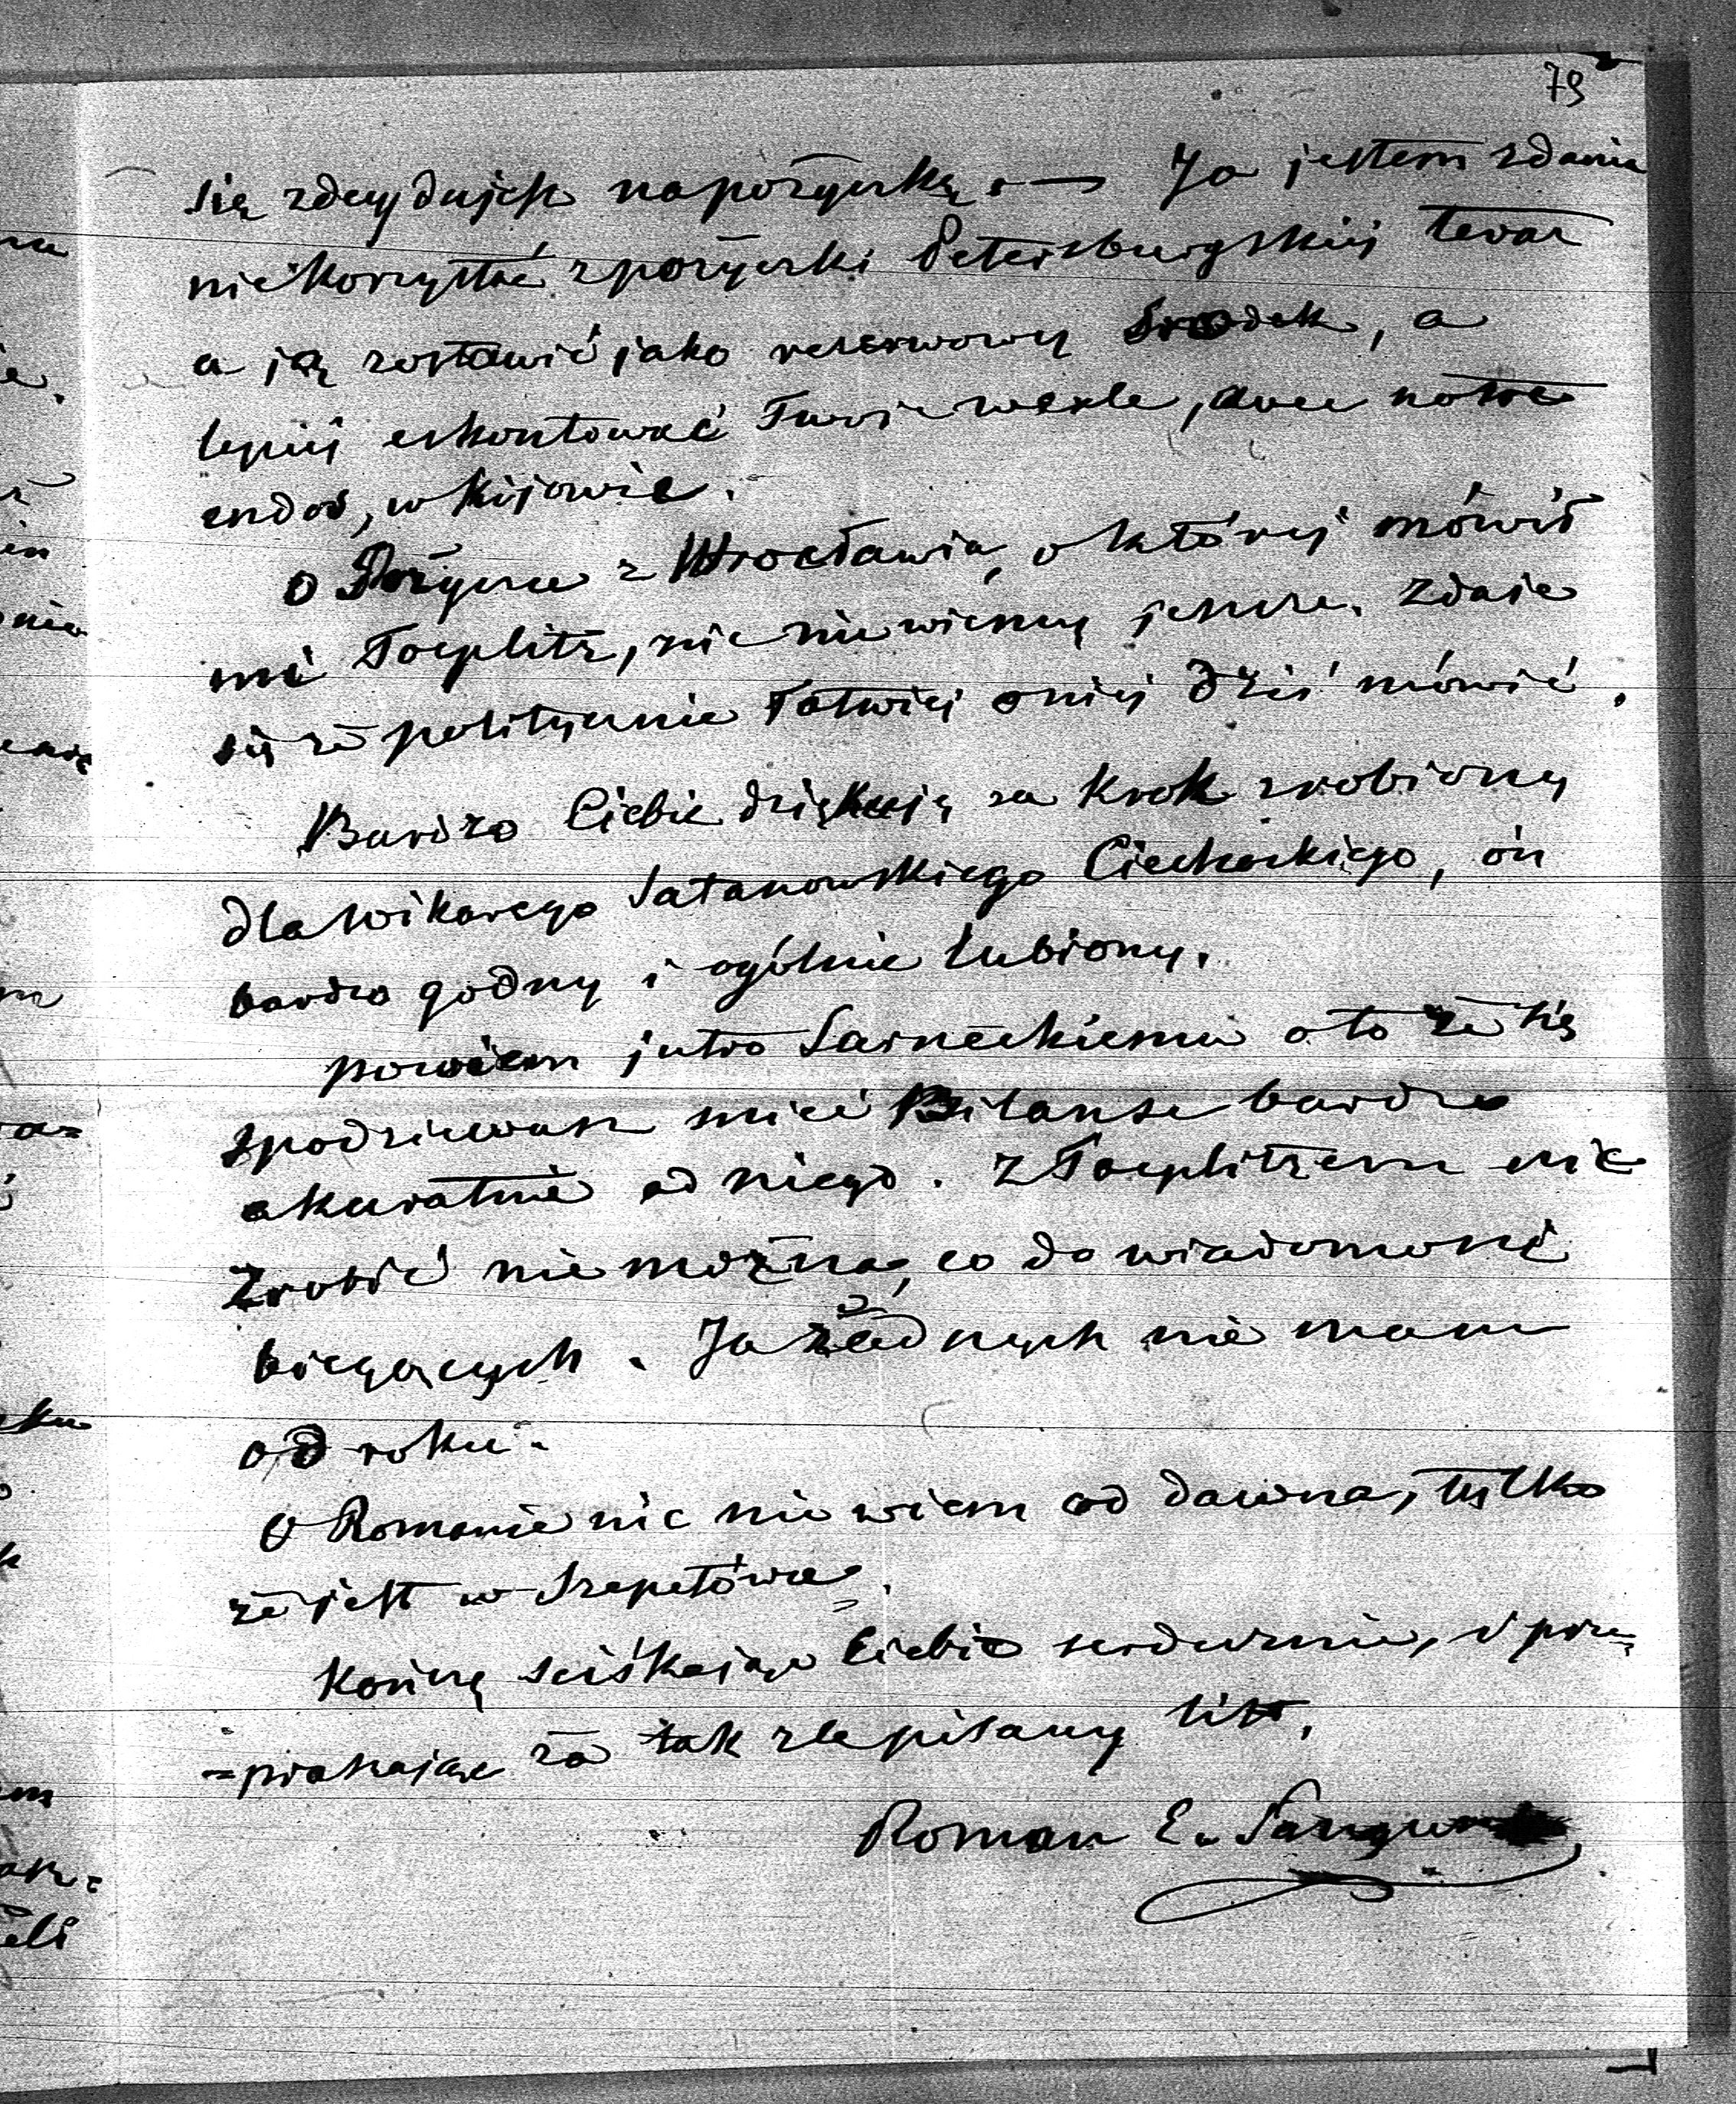 79
się zdecydujesz na pożyczkę. — Ja jestem zdania
nie korzystać z pożyczki Petersburgskiej teraz
a ją zostawić jako reserwowy środek, a
lepiej eskontować Twoje wexle, avec notre
endos, w Kijowie.
O Pożyczce z Wrocławia, o której mówił
mi Toeplitz, nic nie wiemy jeszcze. Zdaje
się że politycznie łatwiej o niej dziś mówić.
Bardzo Ciebie dziękuję za krok zrobiony
dla Wikarego Satanowskiego Ciechockiego, ón
bardzo godny i ogólnie lubiony.
powiem jutro Sarneckiemu o to że się
spodziewasz mieć Bilanse bardzo
akuratnie od niego. Z Toeplitzem nic
Zrobić nie można, co do wiadomość
bieżących. Ja żadnych nie mam
od roku.
O Romanie nic nie wiem od dawna, tylko
że jest w Szepetówce.
Kończę sciskając Ciebie serdecznie, i prze=
=praszając za tak zle pisany list.
Roman